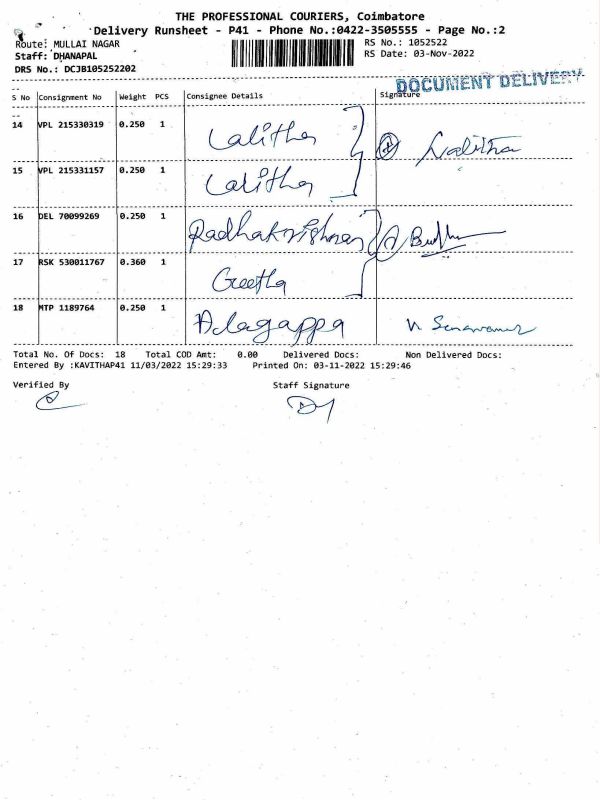 THE PROFESSIONAL COURIERS, Coimbatore
Delivery Runsheet - P41 - Phone No.:0422-3505555 - Page No.:2
Route: MULLAI NAGAR RS No.: 1052522
Staff: DHANAPAL RS Date: 03-Nov-2022
DRS No.: DCJB105252202
DOCUMENT DELIVERY
S No Consignment No Weight PCS Consignee Details Signature
14 VPL 215330319 0.250 1 Lalitha Lalitha
15 VPL 215331157 0.250 1 Lalitha
16 DEL 70099269 0.250 1 Radhakrishnan
17 RSK 530011767 0.360 1 Geetha
18 MTP 1189764 0.250 1 Alagappa
Total No. Of Docs: 18 Total COD Amt: 0.00 Delivered Docs: Non Delivered Docs:
Entered By :KAVITHAP41 11/03/2022 15:29:33 Printed On: 03-11-2022 15:29:46
Verified By Staff Signature